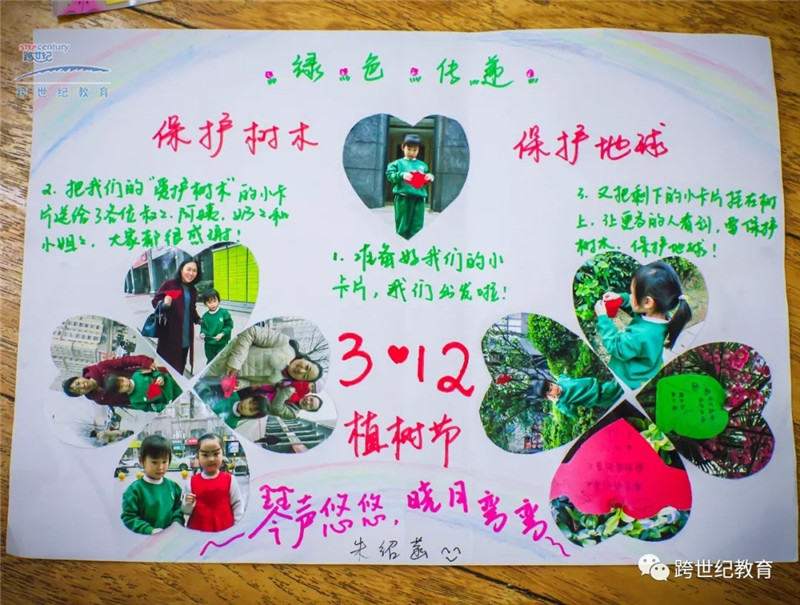 star century
跨世纪
跨世纪教育
绿色传递
保护树木
保护地球
2. 把我们的“爱护树木”的小卡
片送给了各位叔2、阿姨、奶2和
小姐2,大家都很感谢!
1. 准备好我们的小
卡片,我们出发啦!
3. 又把剩下的小卡片挂在树
上,让更多的人看到,要保护
树木,保护地球!
3·12
植树节
琴声悠悠,晓月弯弯
朱绍菡
跨世纪教育